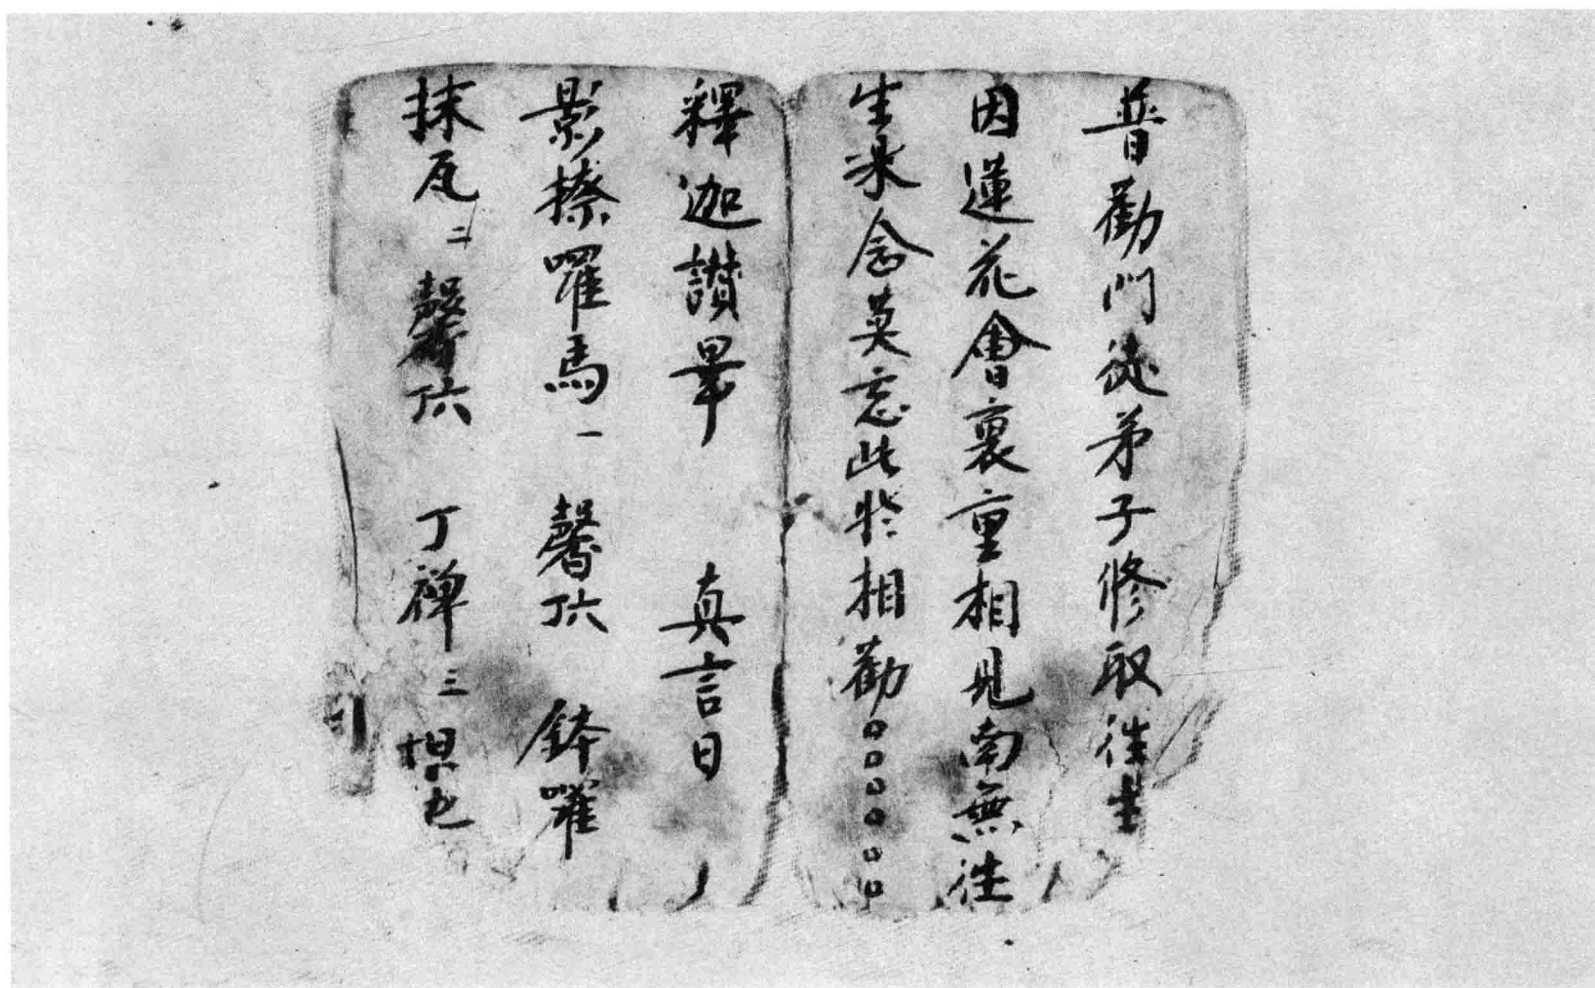 普勸門徒弟子修取往生
因蓮花會裏重相見南無往
生来念莫忘此於相勸○○○○○○
釋迦讚畢 真言曰
影捺囉馬一 馨 鉢囉
抹瓦二 馨 丁禅三 怛